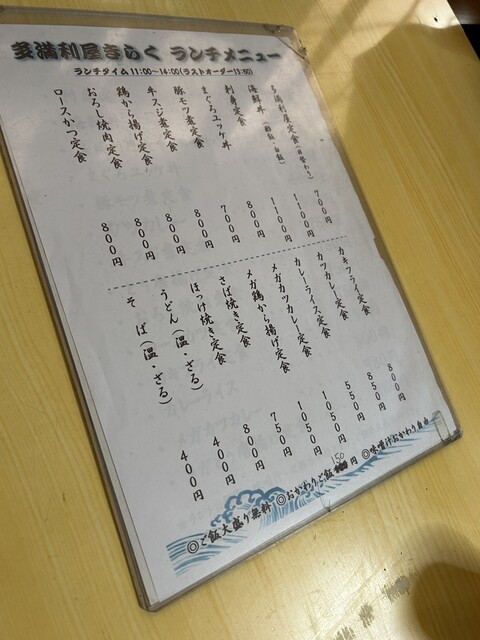 多満利屋きらく ランチメニュー
ランチタイム11:00〜14:00(ラストオーダー13:50)
多満利屋定食(日替わり) 700円
海鮮丼(酢飯・白飯) 1100円
刺身定食 1100円
まぐろユッケ丼 800円
豚モツ煮定食 700円
牛スジ煮定食 800円
鶏から揚げ定食 800円
おろし焼肉定食 800円
ロースかつ定食 800円
カキフライ定食 800円
カツカレー定食 850円
カレーライス定食 550円
メガカツカレー定食 1050円
メガ鶏から揚げ定食 1050円
さば焼き定食 750円
ほっけ焼き定食 800円
うどん(温・ざる) 400円
そば(温・ざる) 400円
◎ご飯大盛り無料 ◎おかわりご飯150円 ◎味噌汁おかわり自由